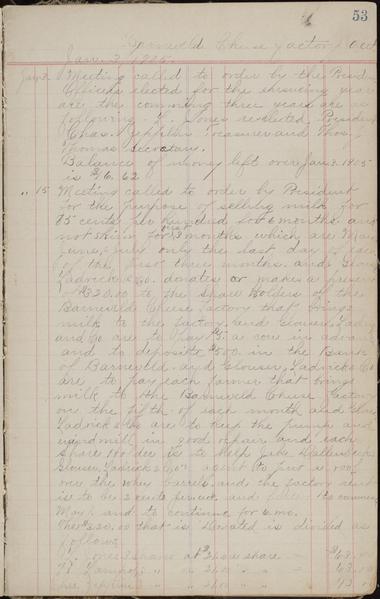 53
Barneveld Cheese Factory Acct
Jan. 3, 1905.
Jan 3. Meeting called to order by the Presd
Officers elected for the ensueing year
are the comming three years are as
following. J. Jones reelected President
Chas. Treasurer and Thos. J
Thomas Secretary.
Balance of money left over Jan. 3. 1905
is $16.62
" 15 Meeting called to order by President
for the purpose of selling milk for
85 cents per hundred for 6 months and
not skim for first 3 months which are May
June, July only the last day of each
of the first three months. and Glouser
Ladrick & Co. donates or makes a present
of $320.00 to the Share Holders of the
Barneveld Cheese Factory that brings
milk to the factory and Glouser, Ladrick
and Co are to pay $5. a cow in advance
and to deposite $500 in the Bank
of Barneveld. and Glouser, Ladrick & Co
are to pay each farmer that brings
milk to the Barneveld Cheese Factory
on the fifth of each month and Glouser
Ladrick & Co are to keep the pump and
windmill in good repair and each
share holder is to help Jake
Glouser Ladrick & Co's agent to put a roof
over the whey barrels and the factory rent
is to be 5 cents per cwt. and to commence
May 1 and to continue for 6 mo.
The $320.00 that is Donated is divided as
follows
Jones 3 shares at $21 per share — $63.00
" " " " " 63.00
" " " "